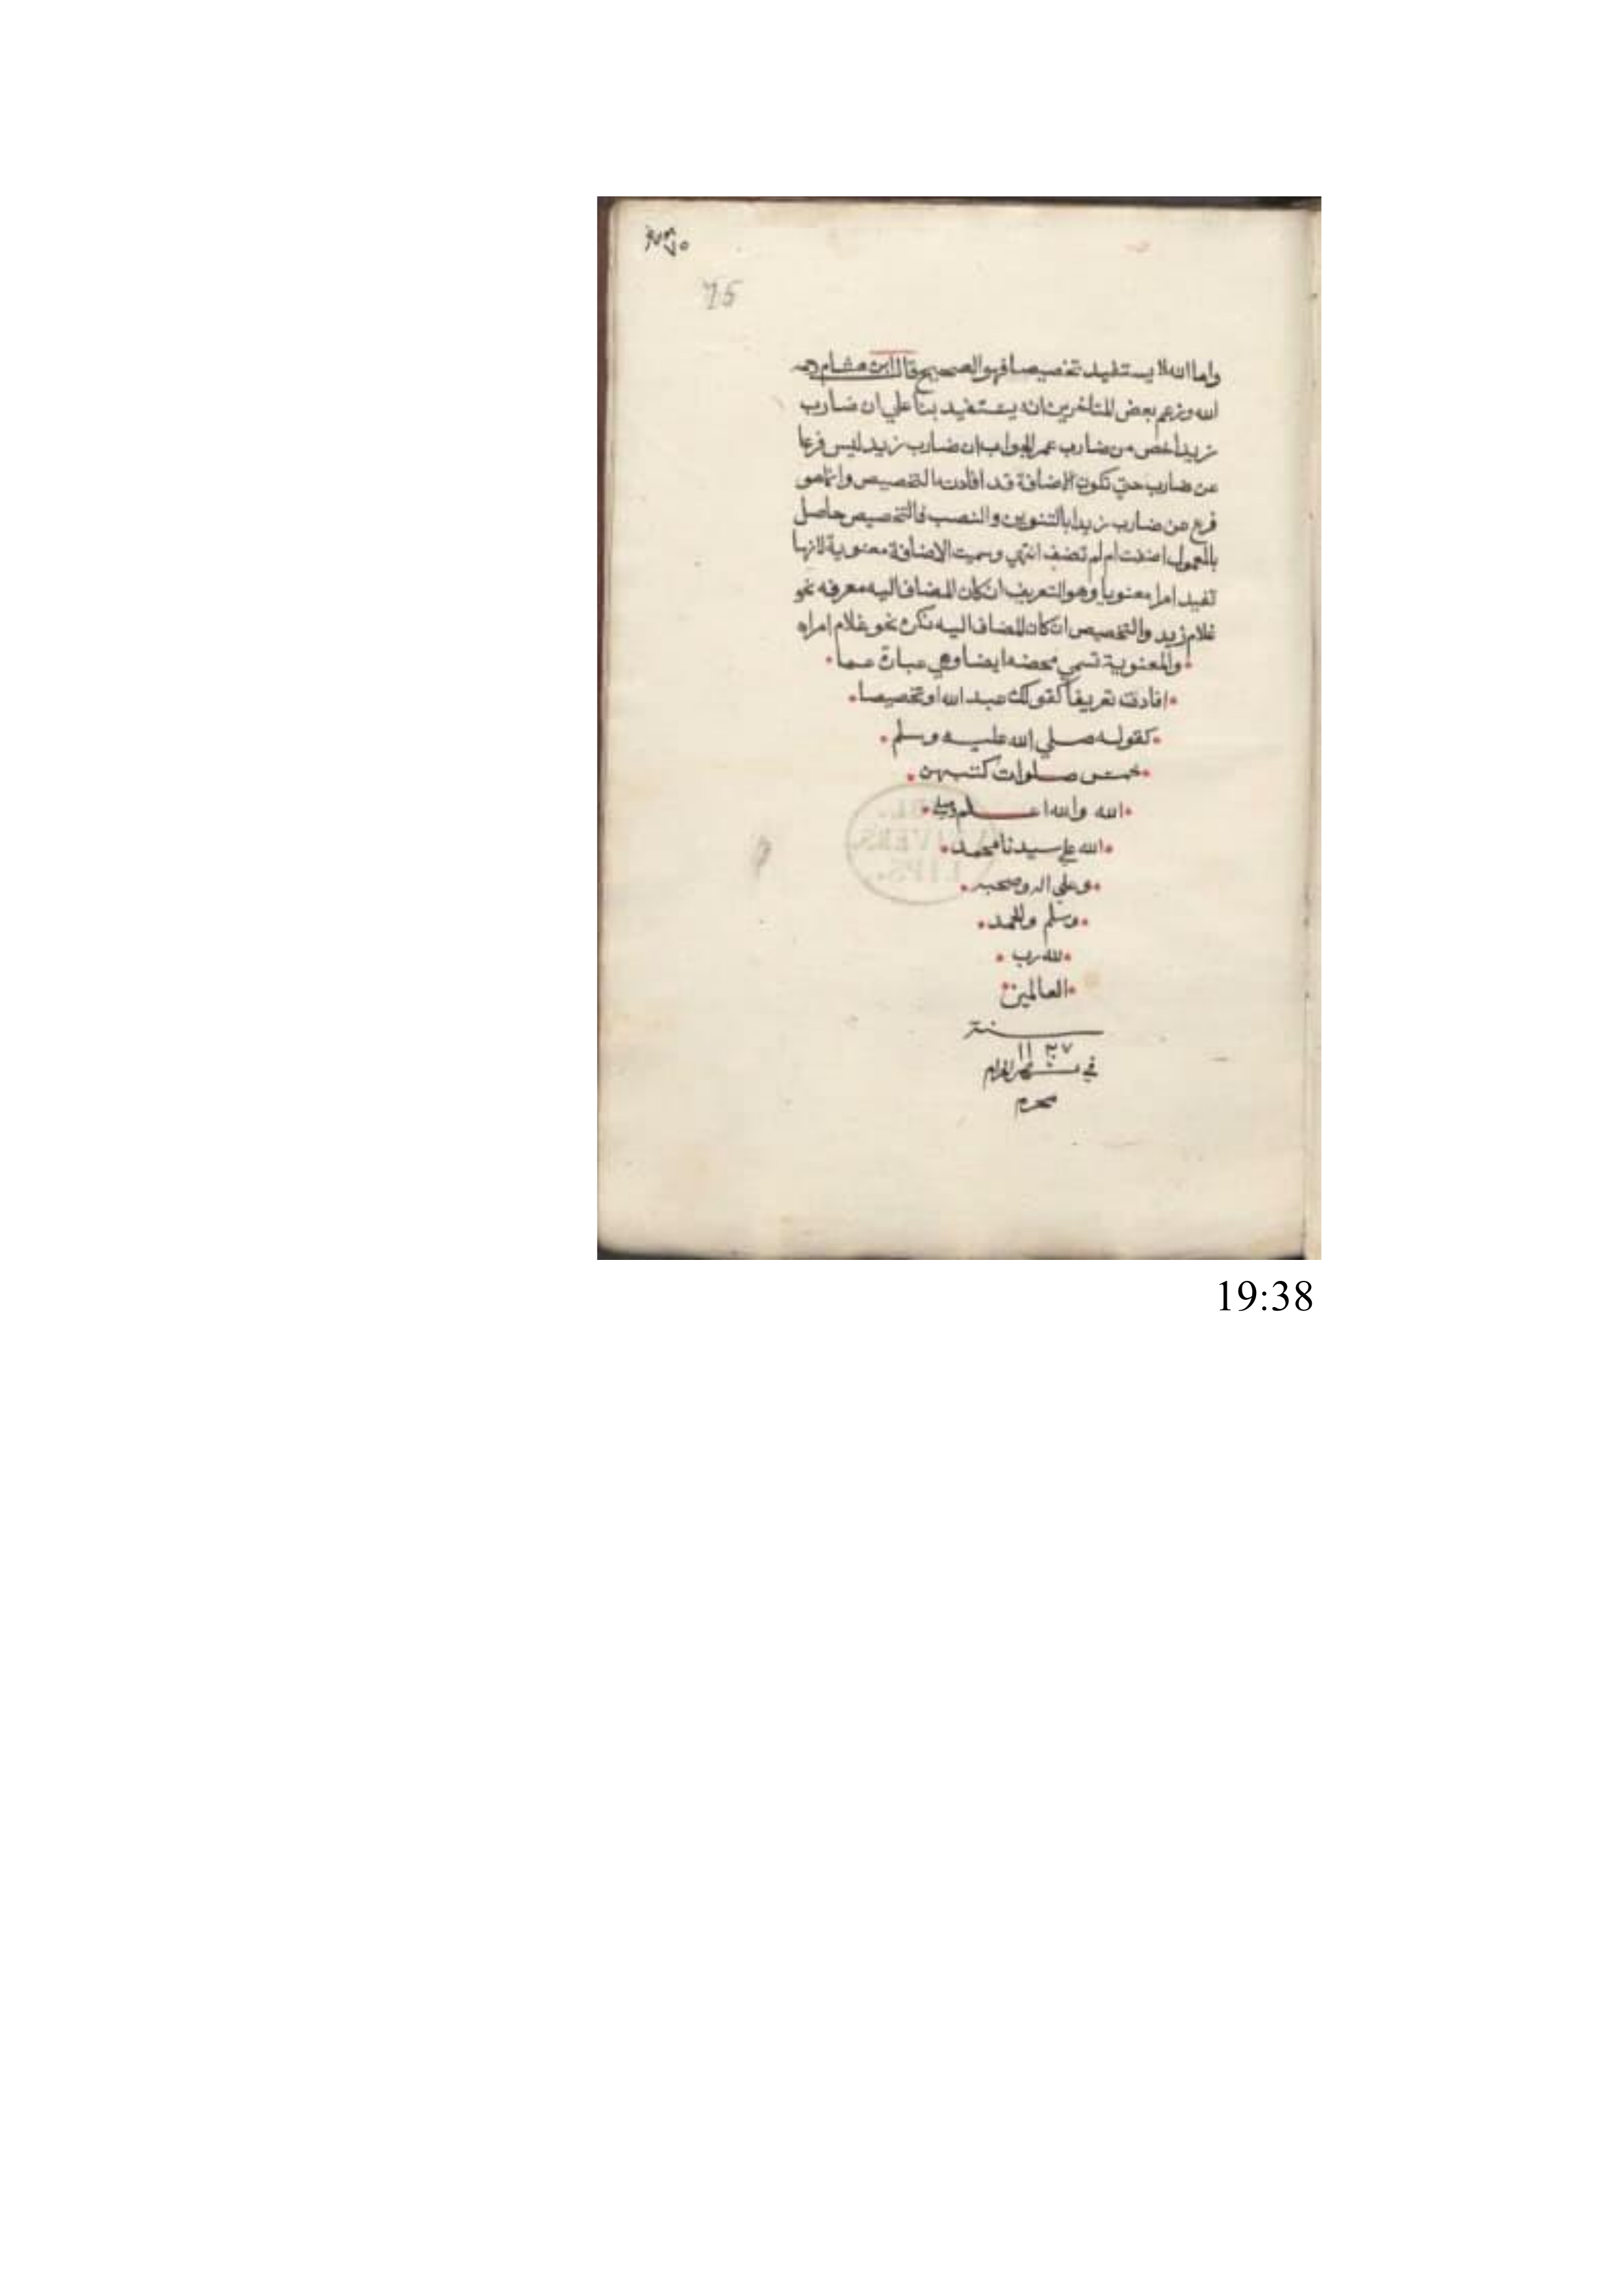 ٧٥
75
واما انه لا يستفيد تخصيصا فهو الصحيح قال ابن هشام رحمه
الله وزعم بعض المتاخرين انه يستفيد بنا علي ان ضارب
زيد اخص من ضارب عمر الجواب ان ضارب زيد ليس فرعا
عن ضارب حتي تكون الاضافة قد افادت التخصيص وانما هو
فرع من ضارب زيدا بالتنوين والنصب فالتخصيص حاصل
بالمعمول اضفت ام لم تضف انتهي وسميت الاضافة معنوية لانها
تفيد امرا معنويا وهو التعريف ان كان المضاف اليه معرفه نحو
غلام زيد والتخصيص ان كان المضاف اليه نكره نحو غلام امراه
والمعنوية تسمي محضه ايضا وهي عبارة عما
افادت تعريفا كقولك عبد الله او تخصيصا
كقوله صلي الله عليه وسلم
خمس صلوات كتبهن
الله والله اعلم وصلي
الله علي سيدنا محمد
وعلي اله وصحبه
وسلم والحمد
لله رب
العالمين
سنة
١١٢٧
في شهر الحرام
محرم
BIBL.
UNIVERS.
LIPS.
19:38